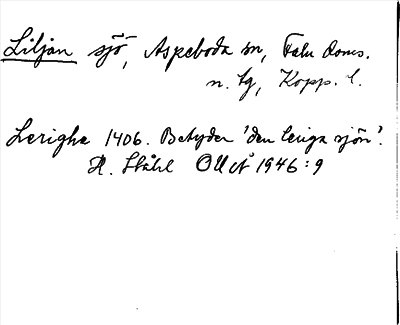 Liljan sjö, Aspeboda sn, Falu doms.
n. tg, Kopp. l.
Lerighe 1406. Betyder 'den leriga sjön'.
H. Ståhl OUÅ 1946:9